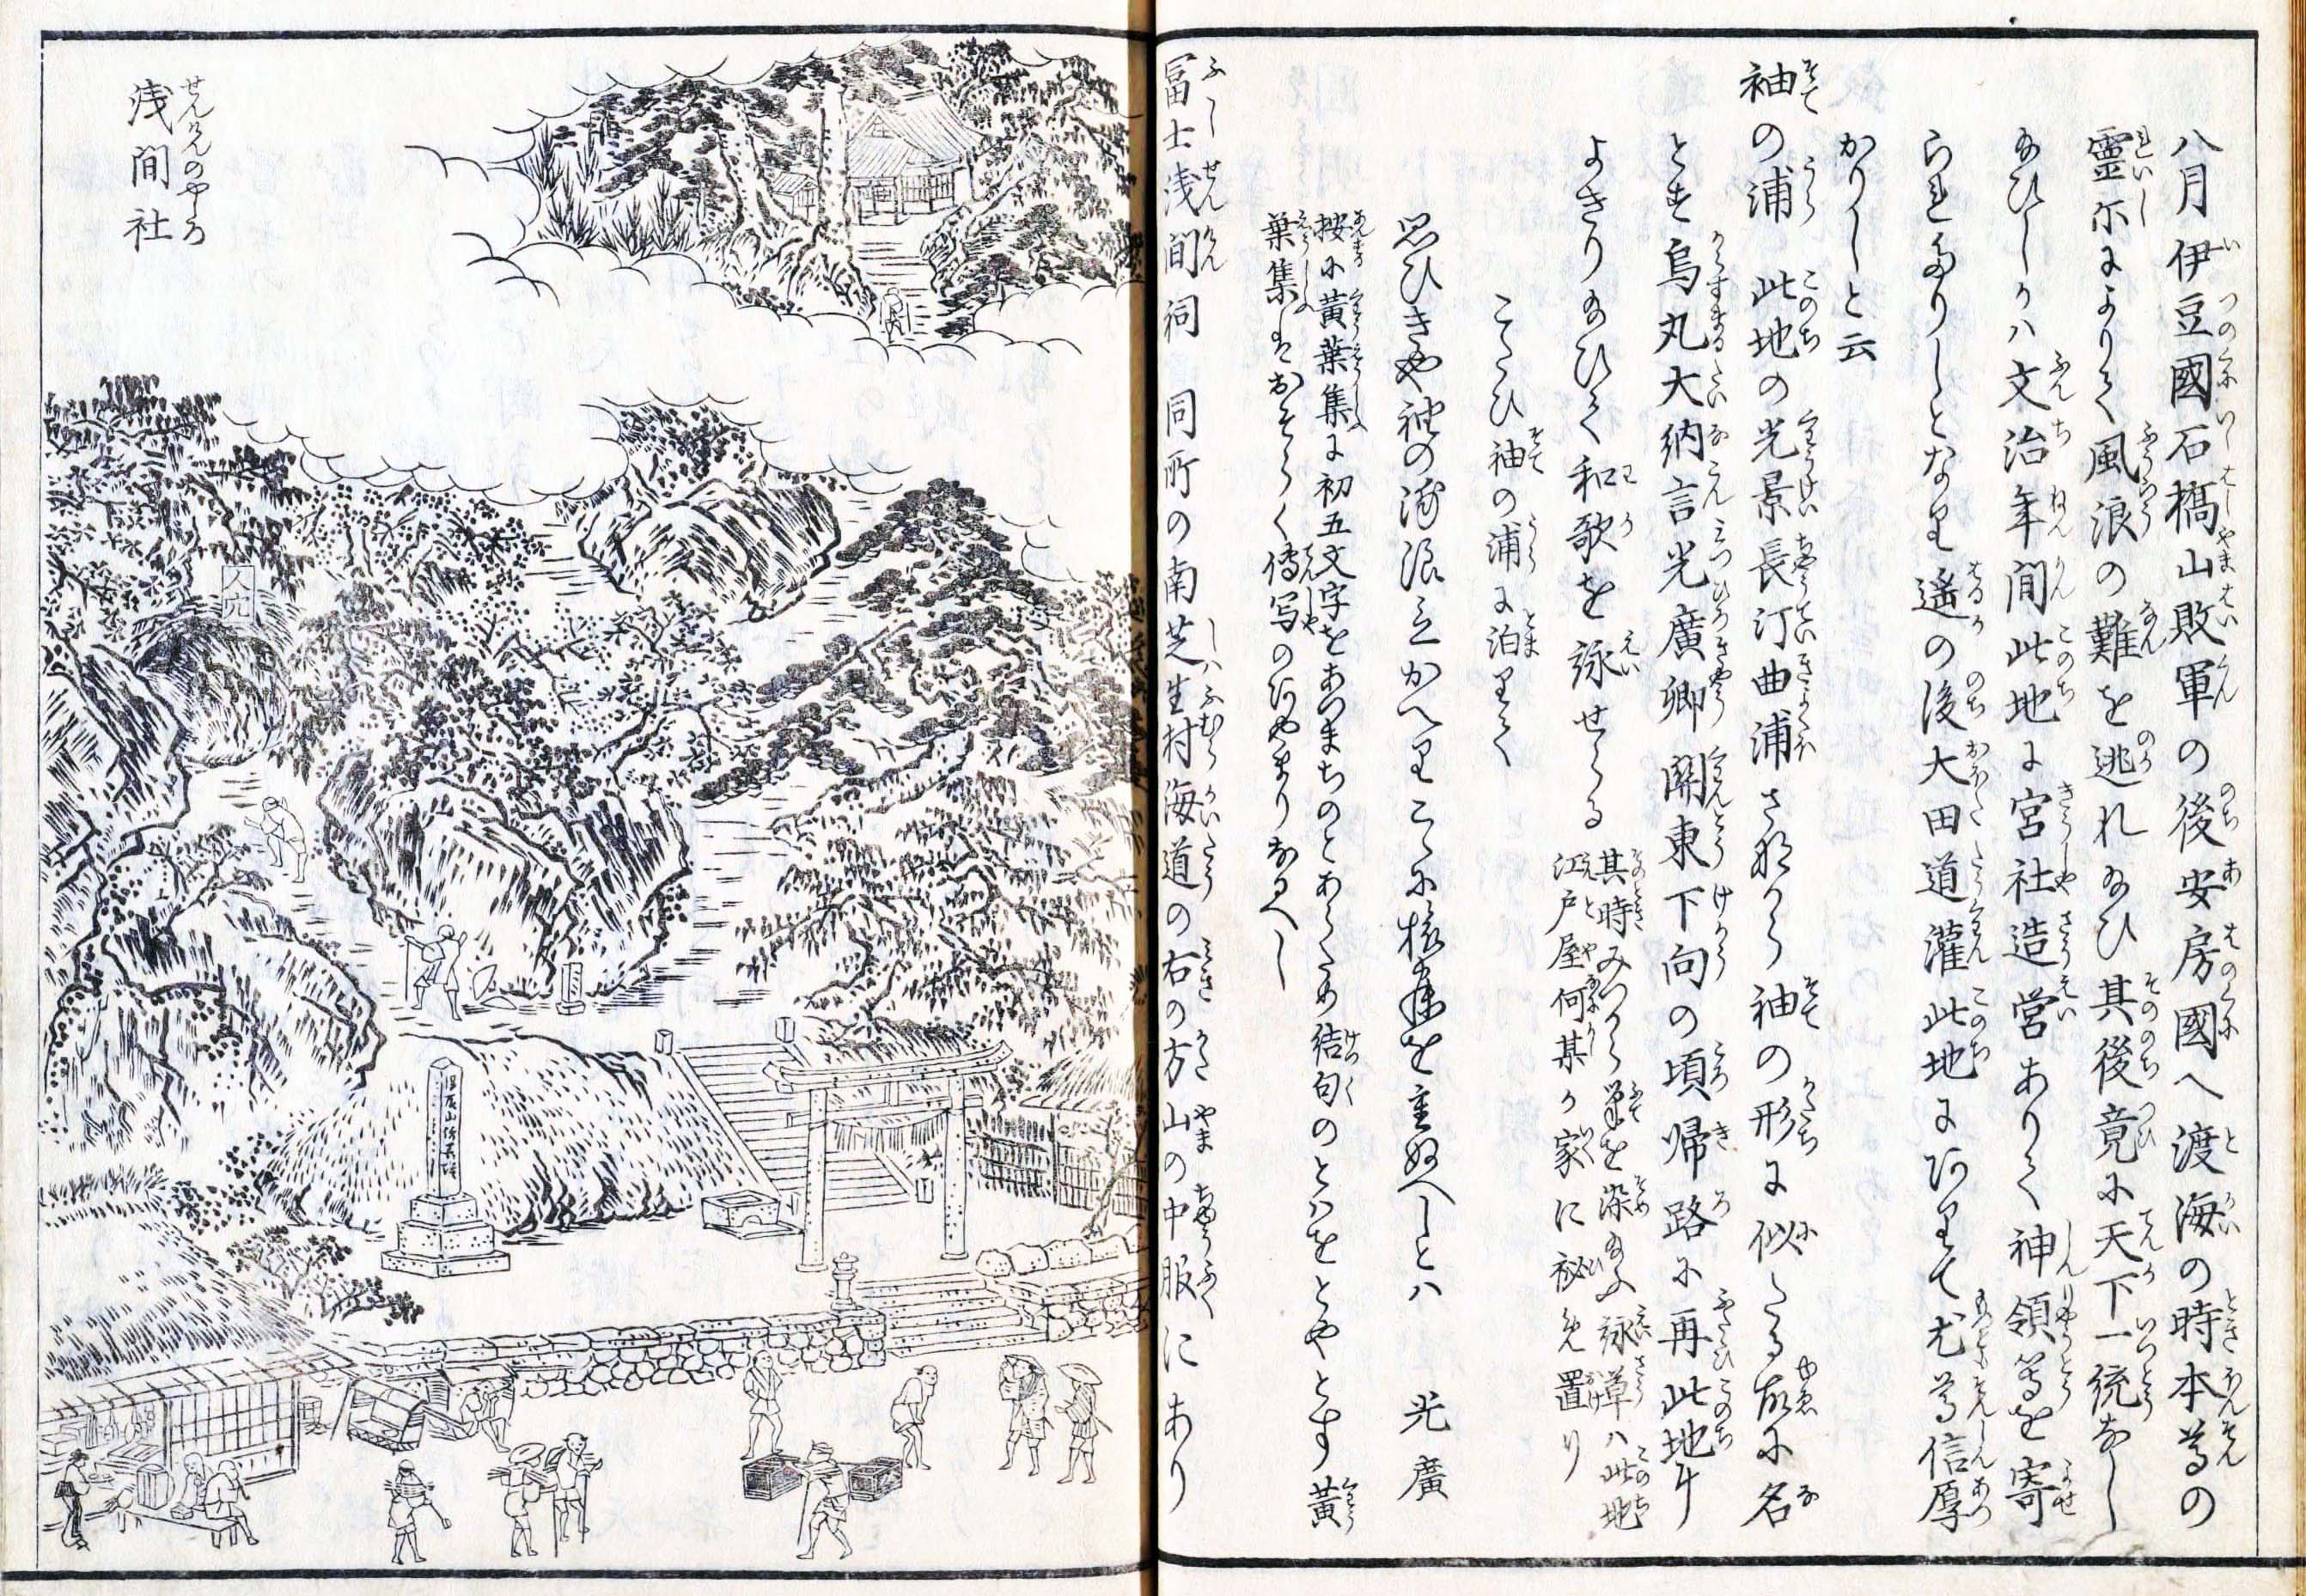 八月伊豆國石橋山敗軍の後安房國へ渡海の時本尊の
靈示によりて風浪の難を逃れ給ひ其後竟に天下一統なし
給ひしかハ文治年間此地に宮社造営ありて神領等を寄
られたりしとなり遙の後大田道灌此地にありて尤尊信厚
かりしと云
袖の浦 此地の光景長汀曲浦さながら袖の形に似たる故に名
とす烏丸大納言光廣卿關東下向の頃帰路に再此地に
よきり給ひて和歌を詠せらる
其時みつから筆を染給ふ詠草ハ此地
江戸屋何某か家に秘め置り
こたひ袖の浦に泊りて
思ひきや袖の浦浪立かへりこゝに旅寐を重ぬへしとハ 光廣
按に黄葉集に初五文字をあつまちのとあらため結句のとハをとやとす黄
葉集はおそらく傳写のあやまりなるへし
冨士浅間祠 同所の南芝生村海道の右の方山の中腹にあり
浅間社
せんけんのやしろ
人穴